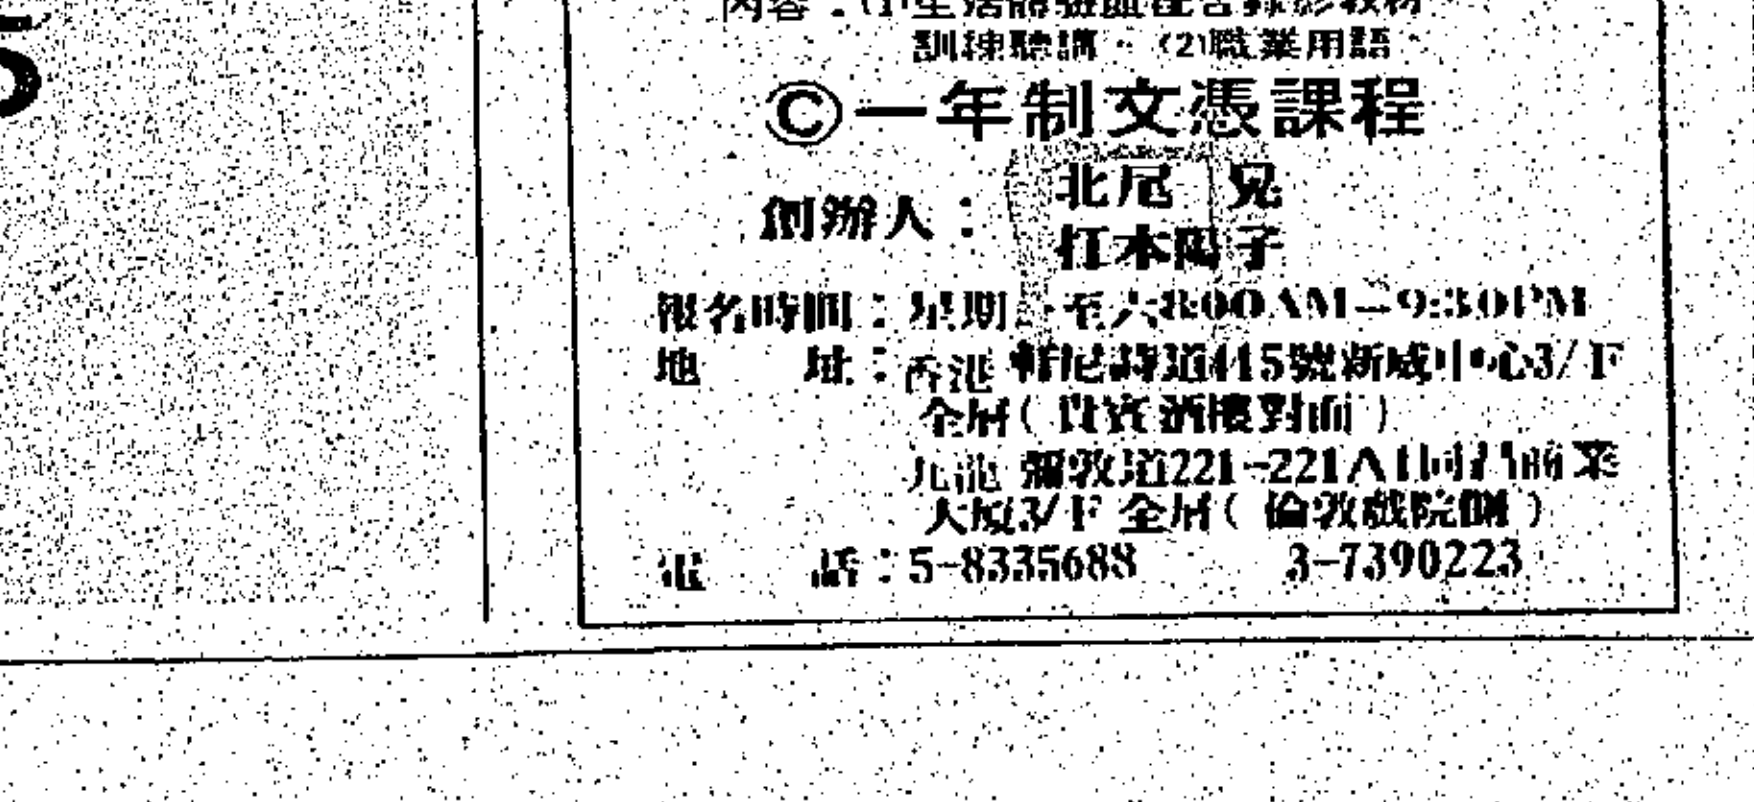 5
內容：(1)生活體驗
訓練聽講。(2)職業用語。
Ⓒ一年制文憑課程
創辦人：
北尾 晃
江本陽子
報名時間：星期一至六8:00AM－9:30PM
地 址：香港 軒尼詩道415號新威中心3/F
全層(貴賓酒樓對面)
九龍 彌敦道221-221A 商業
大廈3/F 全層(倫敦戲院側)
電 話：5-8335688 3-7390223